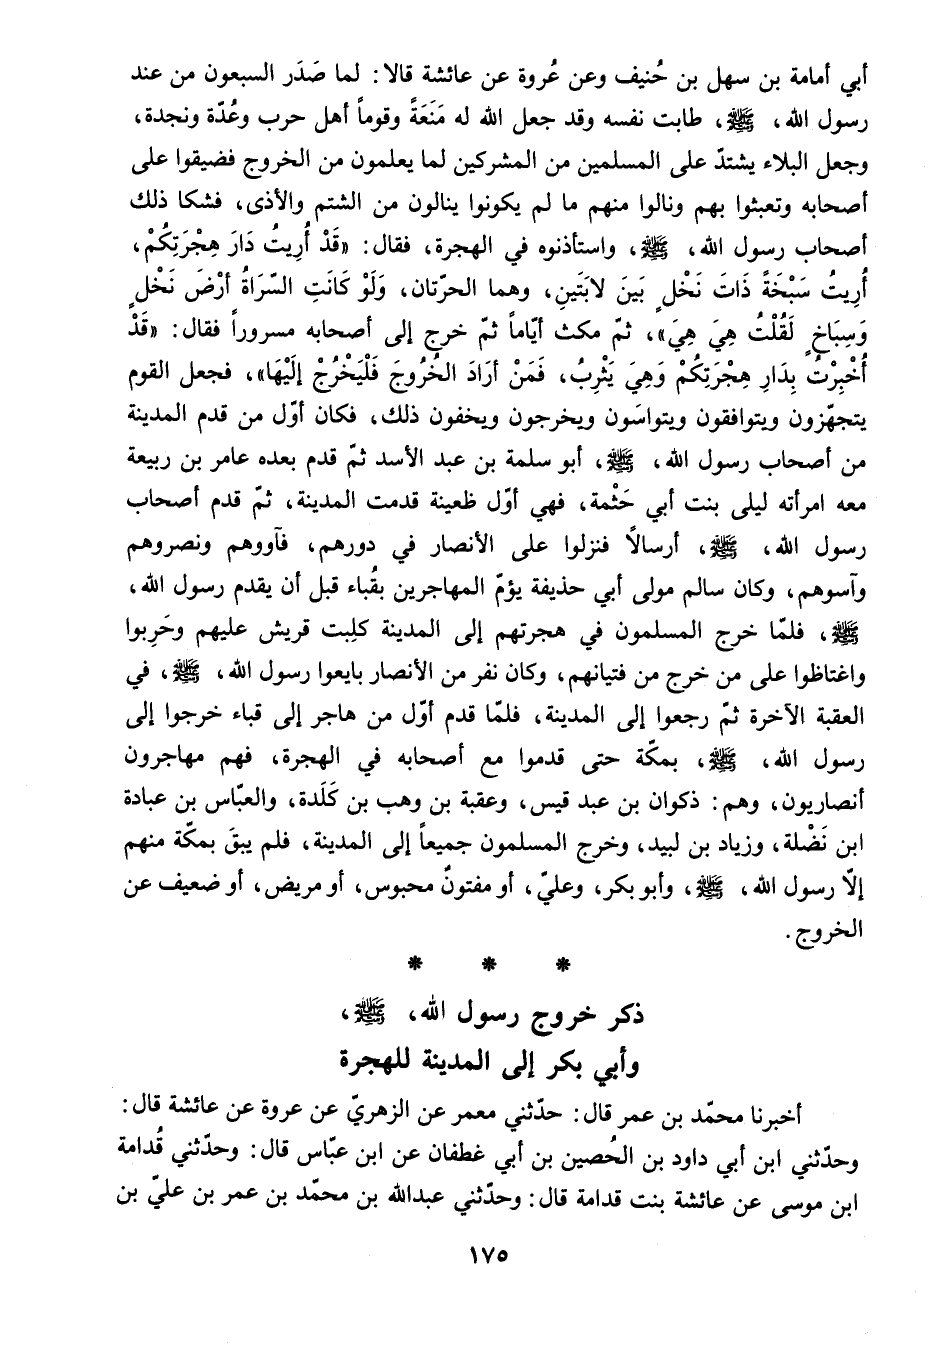 أبي أمامة بن سهل بن حُنيف وعن عُروة عن عائشة قالا: لما صَدَر السبعون من عند
رسول الله، ﷺ، طابت نفسه وقد جعل الله له مَنَعَةً وقوماً أهل حرب وعُدّة ونجدة،
وجعل البلاء يشتدّ على المسلمين من المشركين لما يعلمون من الخروج فضيقوا على
أصحابه وتعبثوا بهم ونالوا منهم ما لم يكونوا ينالون من الشتم والأذى، فشكا ذلك
أصحاب رسول الله، ﷺ، واستأذنوه في الهجرة، فقال: «قَدْ أُرِيتُ دَارَ هِجْرَتِكُمْ،
أُرِيتُ سَبْخَةً ذَاتَ نَخْلٍ بَينَ لابَتَينِ، وهما الحرّتان، وَلَوْ كَانَتِ السّرَاةُ أرْضَ نَخْلٍ
وَسِبَاخٍ لَقُلْتُ هِيَ هِيَ»، ثمّ مكث أيّاماً ثمّ خرج إلى أصحابه مسروراً فقال: «قَدْ
أُخْبِرْتُ بِدَارِ هِجْرَتِكُمْ وَهِيَ يَثْرِبُ، فَمَنْ أرَادَ الخُرُوجَ فَلْيَخْرُجْ إلَيْهَا»، فجعل القوم
يتجهّزون ويتوافقون ويتواسَون ويخرجون ويخفون ذلك، فكان أوّل من قدم المدينة
من أصحاب رسول الله، ﷺ، أبو سلمة بن عبد الأسد ثمّ قدم بعده عامر بن ربيعة
معه امرأته ليلى بنت أبي حَثْمة، فهي أوّل ظعينة قدمت المدينة، ثمّ قدم أصحاب
رسول الله، ﷺ، أرسالاً فنزلوا على الأنصار في دورهم، فآووهم ونصروهم
وآسوهم، وكان سالم مولى أبي حذيفة يؤمّ المهاجرين بقُباء قبل أن يقدم رسول الله،
ﷺ، فلمّا خرج المسلمون في هجرتهم إلى المدينة كلِبت قريش عليهم وحَرِبوا
واغتاظوا على من خرج من فتيانهم، وكان نفر من الأنصار بايعوا رسول الله، ﷺ، في
العقبة الآخرة ثمّ رجعوا إلى المدينة، فلمّا قدم أوّل من هاجر إلى قباء خرجوا إلى
رسول الله، ﷺ، بمكّة حتى قدموا مع أصحابه في الهجرة، فهم مهاجرون
أنصاريون، وهم: ذكوان بن عبد قيس، وعقبة بن وهب بن كَلَدة، والعبّاس بن عبادة
ابن نَضْلة، وزياد بن لبيد، وخرج المسلمون جميعاً إلى المدينة، فلم يبقَ بمكّة منهم
إلّا رسول الله، ﷺ، وأبو بكر، وعليّ، أو مفتونٌ محبوس، أو مريض، أو ضعيف عن
الخروج.
* * *
ذكر خروج رسول الله، ﷺ،
وأبي بكر إلى المدينة للهجرة
أخبرنا محمّد بن عمر قال: حدّثني معمر عن الزهريّ عن عروة عن عائشة قال:
وحدّثني ابن أبي داود بن الحُصين بن أبي غطفان عن ابن عبّاس قال: وحدّثني قُدامة
ابن موسى عن عائشة بنت قدامة قال: وحدّثني عبدالله بن محمّد بن عمر بن عليّ بن
١٧٥